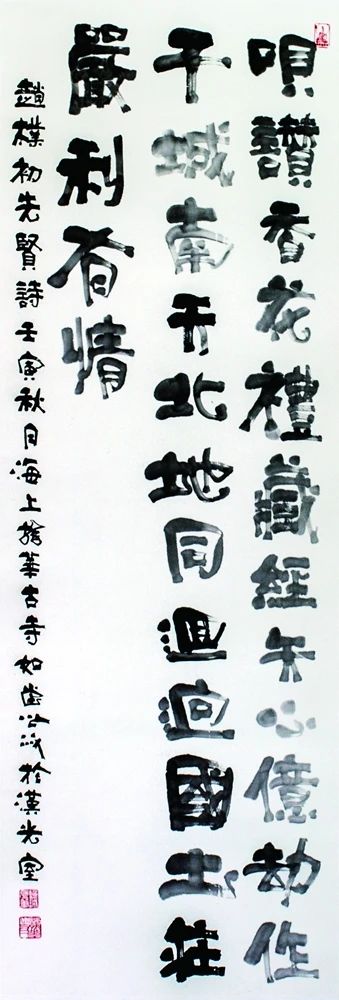 唄讚香花禮藏經矢心億劫作
干城南天北地同迴逈國土莊
嚴利有情
趙樸初先賢詩壬寅秋月海上華古寺如於漢光室